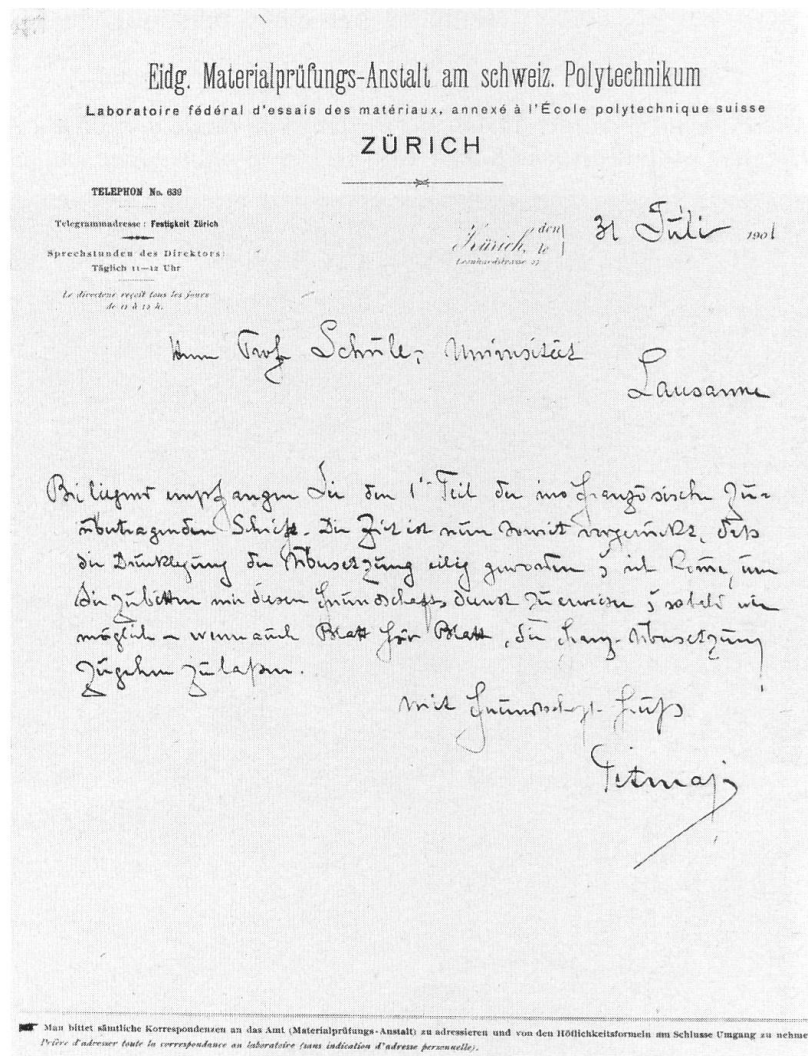 Eidg. Materialprüfungs-Anstalt am schweiz. Polytechnikum
Laboratoire fédéral d'essais des matériaux, annexé à l'École polytechnique suisse
ZÜRICH
TELEPHON No. 639
Telegrammadresse: Festigkeit Zürich
Sprechstunden des Direktors:
Täglich 11—12 Uhr
Le directeur reçoit tous les jours
de 11 à 12 h.
Zürich, den
le
31 Juli 1901
Leonhardstrasse 27
Herrn Prof. Schüle, Universität
Lausanne
Beiliegend empfangen Sie den 1. Teil der ins französische zu=
übertragenden Schift. Die Zeit ist nun soweit vorgerückt, daß
die Drucklegung der Übersetzung eilig geworden & ich komme, um
Sie zu bitten mir diesen Freundschaftsdienst zu erweisen & sobald wie
möglich – wenn auch Blatt für Blatt, die franz. Übersetzung
zugehen zu laßen.
Mit freundschaftl. Gruß
Tetmajer
Man bittet sämtliche Korrespondenzen an das Amt (Materialprüfungs-Anstalt) zu adressieren und von den Höflichkeitsformeln am Schlusse Umgang zu nehme
Prière d'adresser toute la correspondance au laboratoire (sans indication d'adresse personnelle).